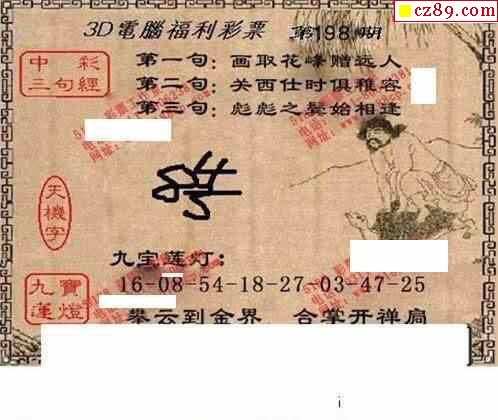 cz89.com
3D電腦福利彩票 第198期
中彩
三句經
第一句：画取花峰赠远人
第二句：关西仕时俱稚容
第三句：彪彪之髮始相逢
天機字
九宝莲灯：
九寶
蓮燈
16-08-54-18-27-03-47-25
攀云到金界 合掌开禅扃
i